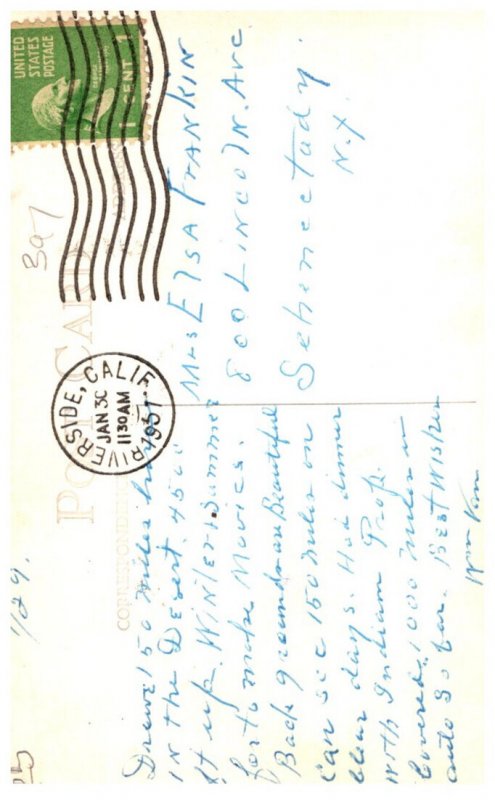 UNITED
STATES
POSTAGE
1 CENT 1
397
POST CARD
RIVERSIDE, CALIF.
JAN 30
11 30 AM
1951
CORRESPONDENCE
ADDRESS
1/29.
Drove 150 miles
IN the Desert. 4500
ft up. WINTER + Summer
for to make Movies.
Back grounds are Beautiful
Can see 150 miles on
clear days. Had dinner
with Indian Prof.
Covered 1000 miles in
auto so far. Best Wishes
Mrs ElSA FRANKIN
800 LINCOlN. Ave.
Schenectady.
N.Y.